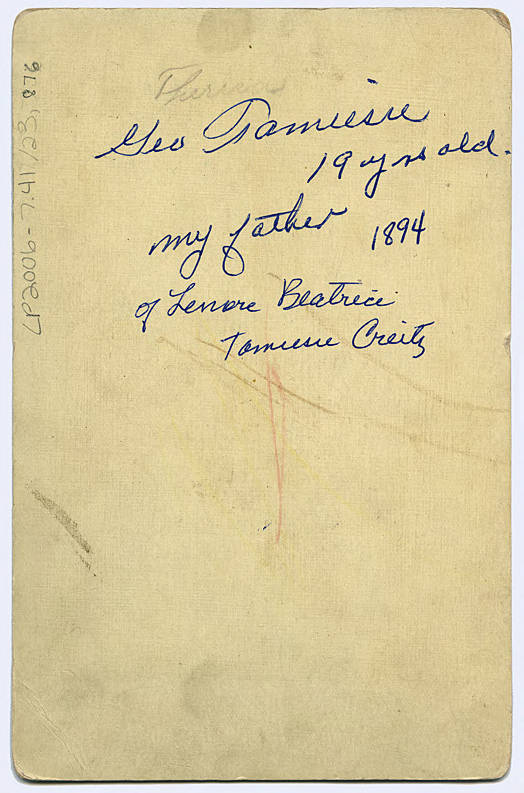 Geo Tamiesie
19 yrs old.
my father 1894
of Lenore Beatrice
Tamiesie Creitz
LP2006-7.41/23, 876